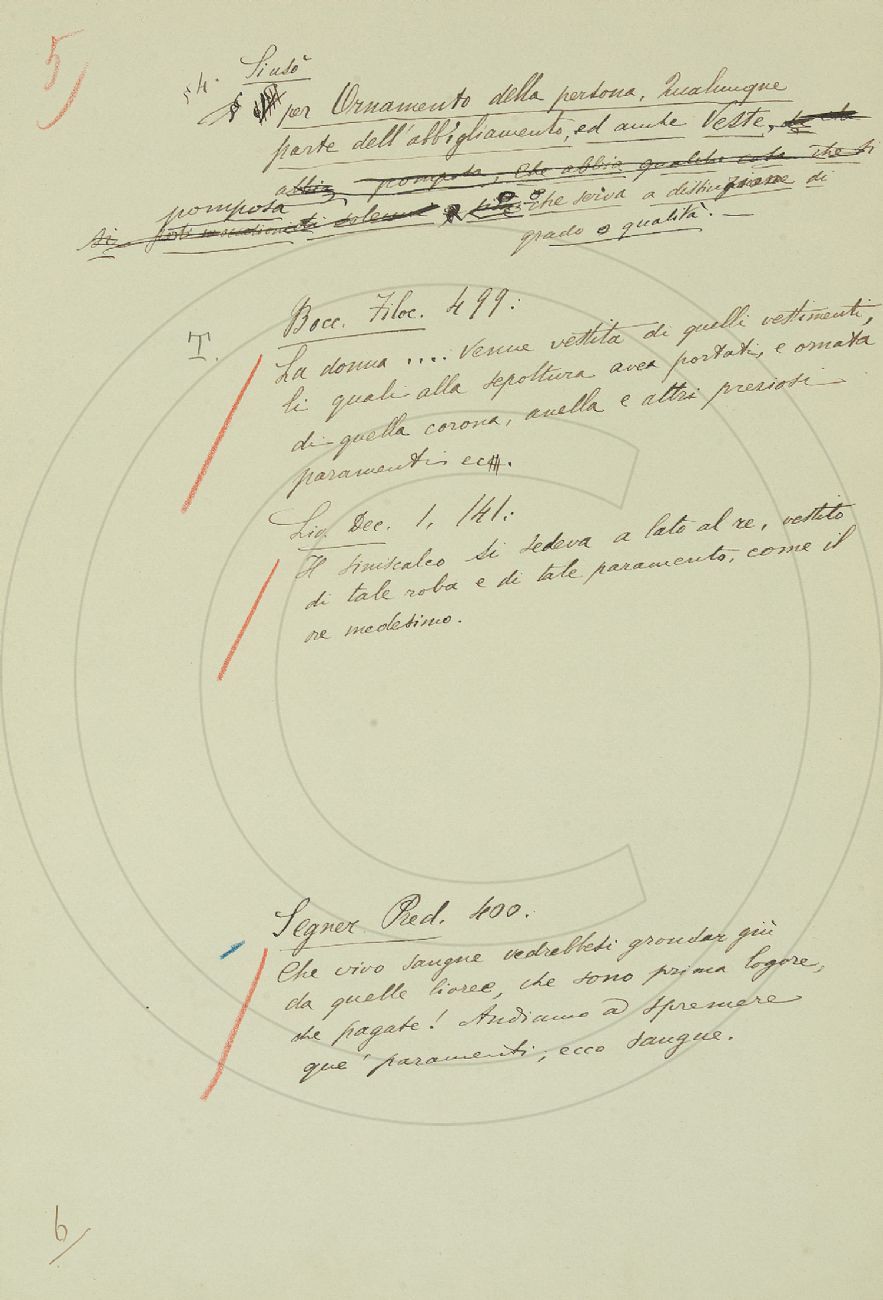 5
54. Si usò
per Ornamento della persona, Qualunque
parte dell'abbigliamento, ed anche Veste,
abbia pomposa, che abbia qualche cosa che si
pomposa o che serva a distinzione di
si solenni
grado o qualità. —
T. Bocc. Filoc. 499:
La donna .... venne vestita di quelli vestimenti,
li quali alla sepoltura avea portati, e ornata
di quella corona, anella e altri preziosi
paramenti ec.
Liv. Dec. 1, 141:
Il siniscalco si sedeva a lato al re, vestito
di tale roba e di tale paramento, come il
re medesimo.
Segner. Pred. 400:
Che vivo sangue vedrebbesi grondar giù
da quelle livree, che sono prima logore,
che pagate! Andiamo a spremere
que' paramenti; ecco sangue.
6